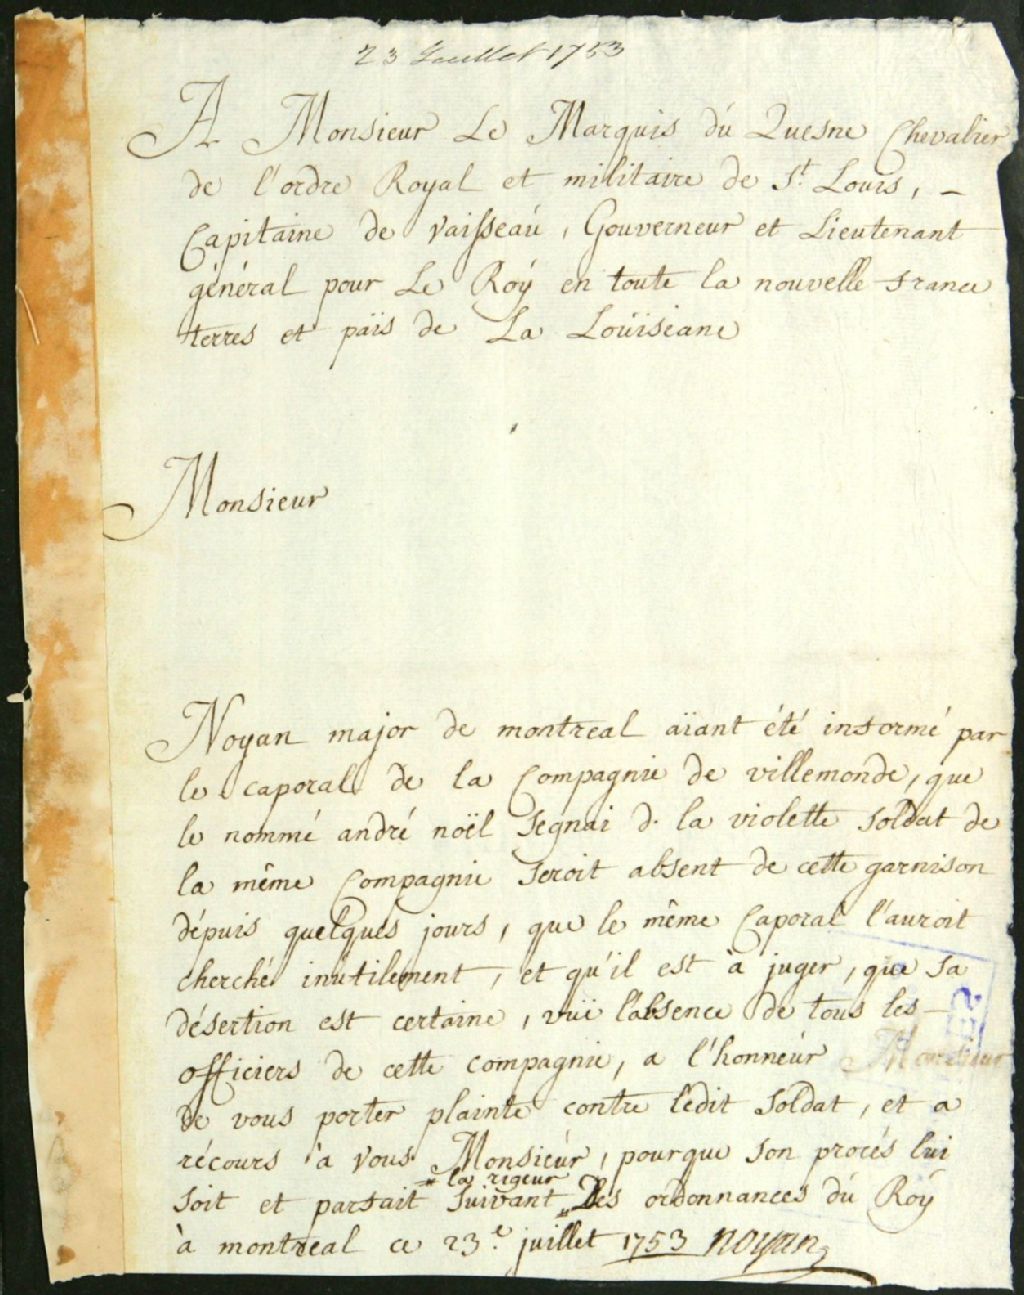 23 Juillet 1753
A Monsieur Le Marquis dú Quesne Chevalier
de l'ordre Royal et militaire de St. Louis, –
Capitaine de Vaisseaú, Gouverneur et Lieutenant
général pour Le Roÿ en toute la nouvelle france
terres et païs de La Loüisiane
Monsieur
Noyan major de montreal aïant été informé par
le caporal de la Compagnie de villemonde, que
le nommé andré noël segnai d. la violette soldat de
la même Compagnie seroit absent de cette garnison
dépuis quelques jours, que le même Caporal l'auroit
cherché inútilement, et qu'il est à juger, que sa
désertion est certaine, vuë l'absence de tous les
officiers de cette compagnie, a l'honneúr Monsieur
de vous porter plainte contre ledit soldat, et a
récours à vous Monsieúr, pourque son procés lui
* la rigeur
soit et parfait suivant „ des ordonnances dú Roÿ
à montreal ce 23.e juillet 1753 noyan